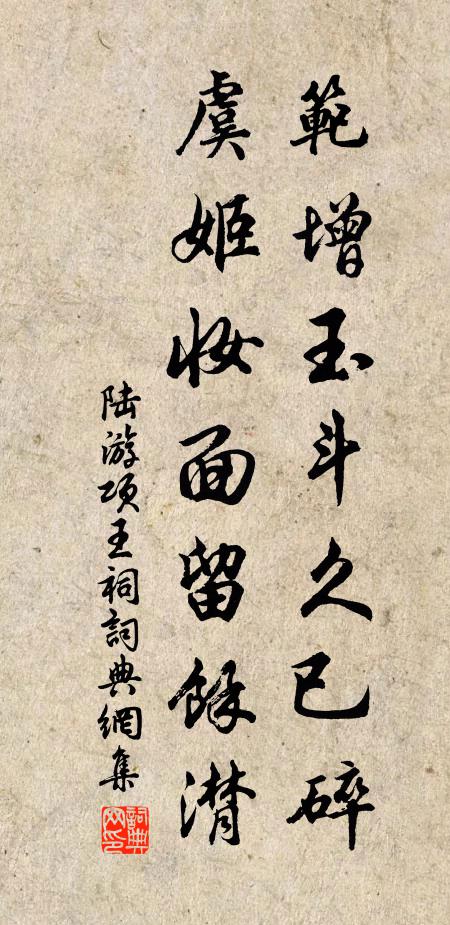 範增玉斗久已碎
虞姬妝面留餘潸
陸游項王祠詞典網集
詞典網印